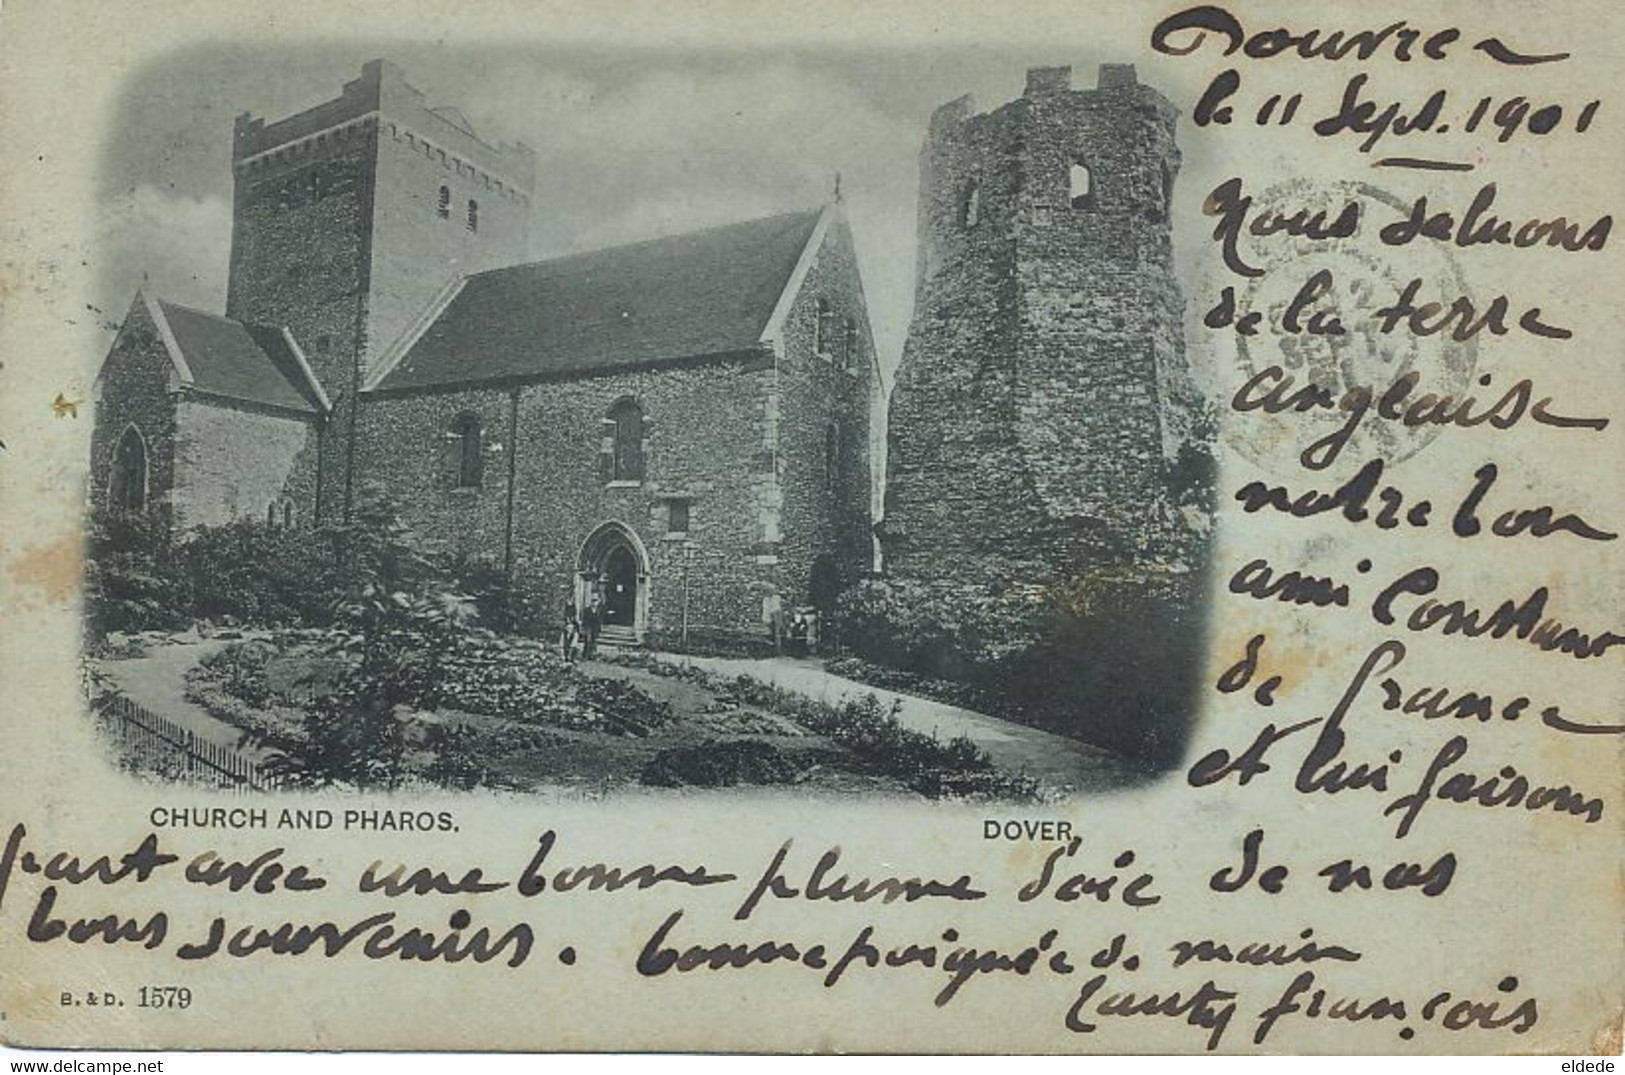 Douvre
le 11 Sept. 1901
Nous saluons
de la terre
anglaise
notre bon
ami Constant
de france
et lui faisons
CHURCH AND PHAROS.
DOVER,
part avec une bonne plume d'oie de nos
bons souvenirs. bonne poignée de main
B. & D. 1579
françois
eldede